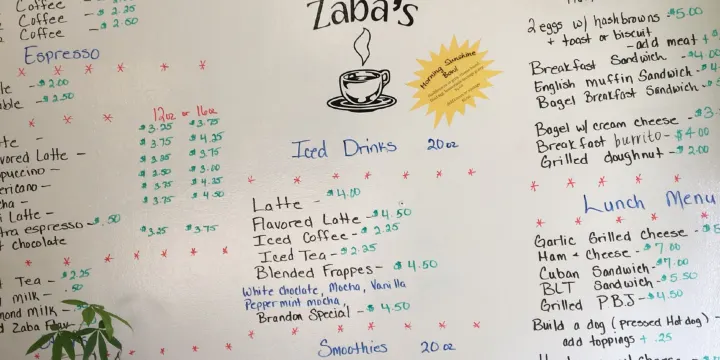 Coffee - $2.25
Coffee - $2.50
Espresso
- $2.00
- $2.50
12oz or 16oz
$3.25 $3.75
Latte - $3.75 $4.25
$3.25 $3.75
$2.50 $3.00
$3.75 $4.25
Latte - $3.75 $4.50
espresso - .50
chocolate $3.25 $3.75
Tea - $2.25
milk - .50
milk -
Zaba
Zaba's
Morning Sunshine
Bowl
Iced Drinks 20oz
Latte - $4.00
Flavored Latte - $4.50
Iced Coffee - $2.25
Iced Tea - $2.25
Blended Frappes - $4.50
White Choclate, Mocha, Vanilla
Peppermint mocha,
Brandon Special - $4.50
Smoothies 20oz
2 eggs w/ hashbrowns - $5.00
+ toast or biscuit
- add meat +
Breakfast Sandwich - $4.00
English Muffin Sandwich -
Bagel Breakfast Sandwich -
Bagel w/ cream cheese -
Breakfast burrito - $4.00
Grilled doughnut - $2.00
Lunch Menu
Garlic Grilled Cheese -
Ham + Cheese - $7.00
Cuban Sandwich - $7.00
BLT Sandwich - $5.50
Grilled PBJ - $4.50
Build a dog (pressed Hot dog) -
add toppings + .25